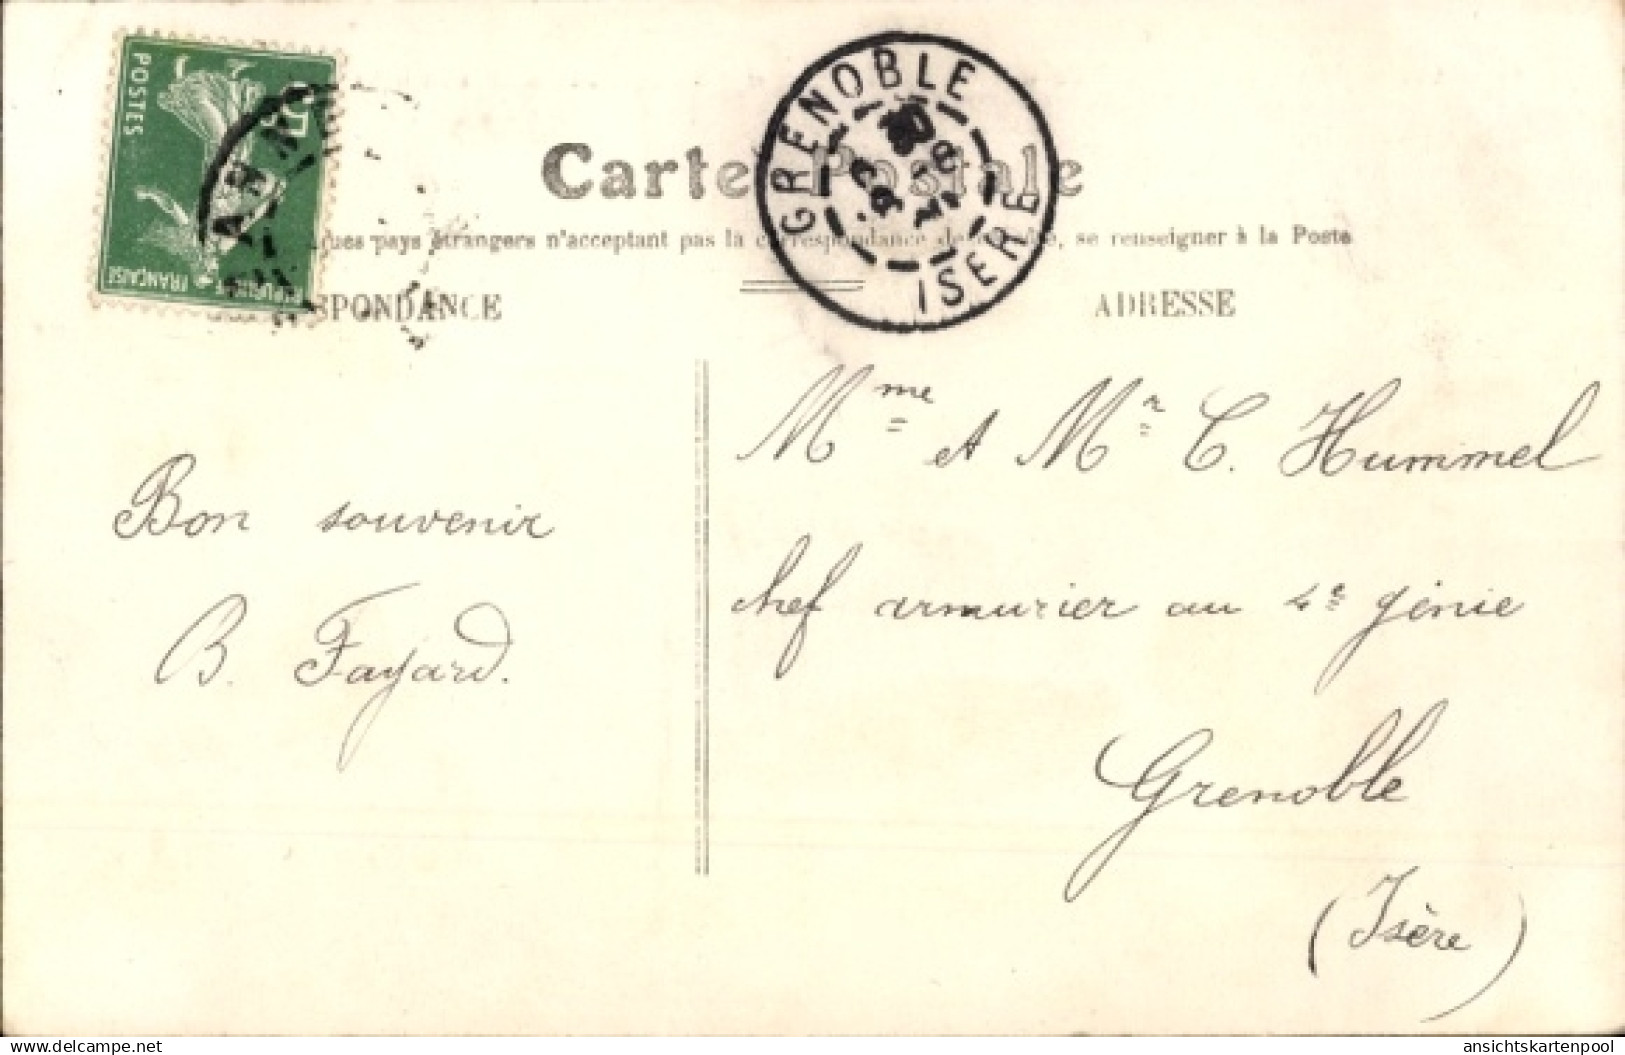 POSTES
FRANÇAISE
GRENOBLE
ISERE
Carte Postale
ques pays étrangers n'acceptant pas la correspondance de, se renseigner à la Poste
SPONDANCE
ADRESSE
Mme et Mr C. Hummel
Bon souvenir
chef armurier au 4e génie
B. Fayard.
Grenoble
(Isère)
delcampe.net
ansichtskartenpool